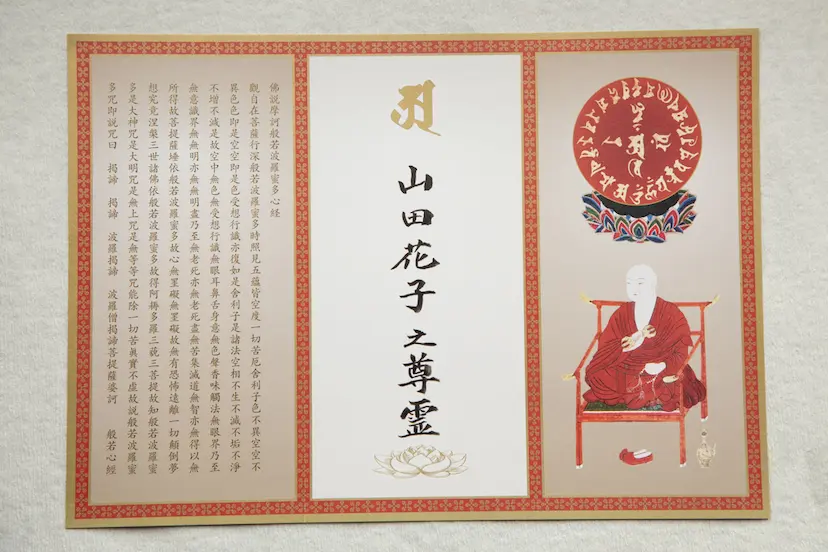 山田花子之尊霊
佛説摩訶般若波羅蜜多心経
觀自在菩薩行深般若波羅蜜多時照見五蘊皆空度一切苦厄舍利子色不異空空不
異色色即是空空即是色受想行識亦復如是舍利子是諸法空相不生不滅不垢不淨
不增不減是故空中無色無受想行識無眼耳鼻舌身意無色聲香味觸法無眼界乃至
無意識界無無明亦無無明盡乃至無老死亦無老死盡無苦集滅道無智亦無得以無
所得故菩提薩埵依般若波羅蜜多故心無罣礙無罣礙故無有恐怖遠離一切顛倒夢
想究竟涅槃三世諸佛依般若波羅蜜多故得阿耨多羅三藐三菩提故知般若波羅蜜
多是大神咒是大明咒是無上咒是無等等咒能除一切苦真實不虛故説般若波羅蜜
多咒即説咒曰　揭諦　揭諦　波羅揭諦　波羅僧揭諦菩提薩婆訶　般若心經